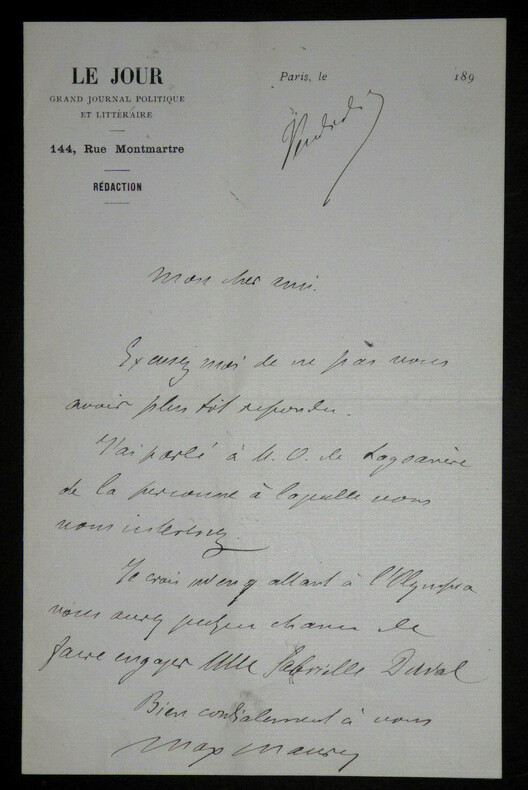 LE JOUR
GRAND JOURNAL POLITIQUE
ET LITTÉRAIRE
144, Rue Montmartre
RÉDACTION
Paris, le 189
Vendredi
Mon cher ami.
Excusez moi de ne pas vous
avoir plus tôt répondu.
J'ai parlé à M. O. de Lagoanère
de la personne à laquelle vous
vous intéressez.
Je crois qu'en y allant à l'Olympia
vous aurez quelque chance de
faire engager Mlle Gabrielle Duval
Bien cordialement à vous
Max Maurey